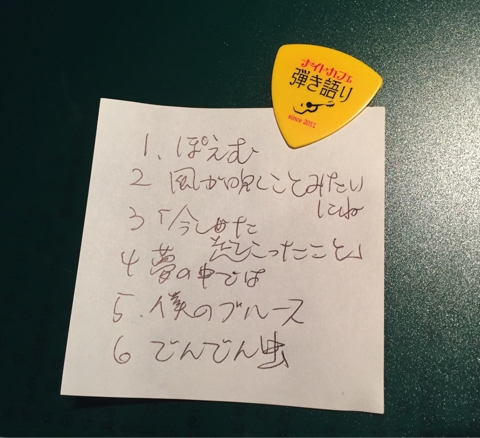 ナイトカフェ
弾き語り
since 2012
1、ぽえむ
2 風が吹くことみたい
にね
3「今しめた
起こったこと」
4 夢の中では
5.僕のブルース
6 でんでん虫